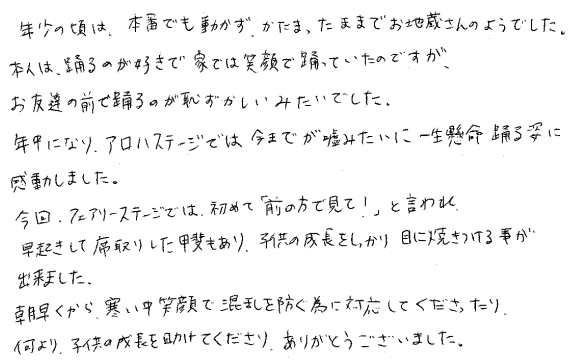 年少の頃は、本番でも動かず、かたまったままでお地蔵さんのようでした。
本人は、踊るのが好きで家では笑顔で踊っていたのですが、
お友達の前で踊るのが恥ずかしいみたいでした。
年中になり、アロハステージでは今までが嘘みたいに一生懸命踊る姿に
感動しました。
今回、フェアリーステージでは、初めて「前の方で見て!」と言われ、
早起きして席取りした甲斐もあり、子供の成長をしっかり目に焼きつける事が
出来ました。
朝早くから、寒い中笑顔で混乱を防ぐ為に対応してくださったり、
何より、子供の成長を助けてくださり、ありがとうございました。